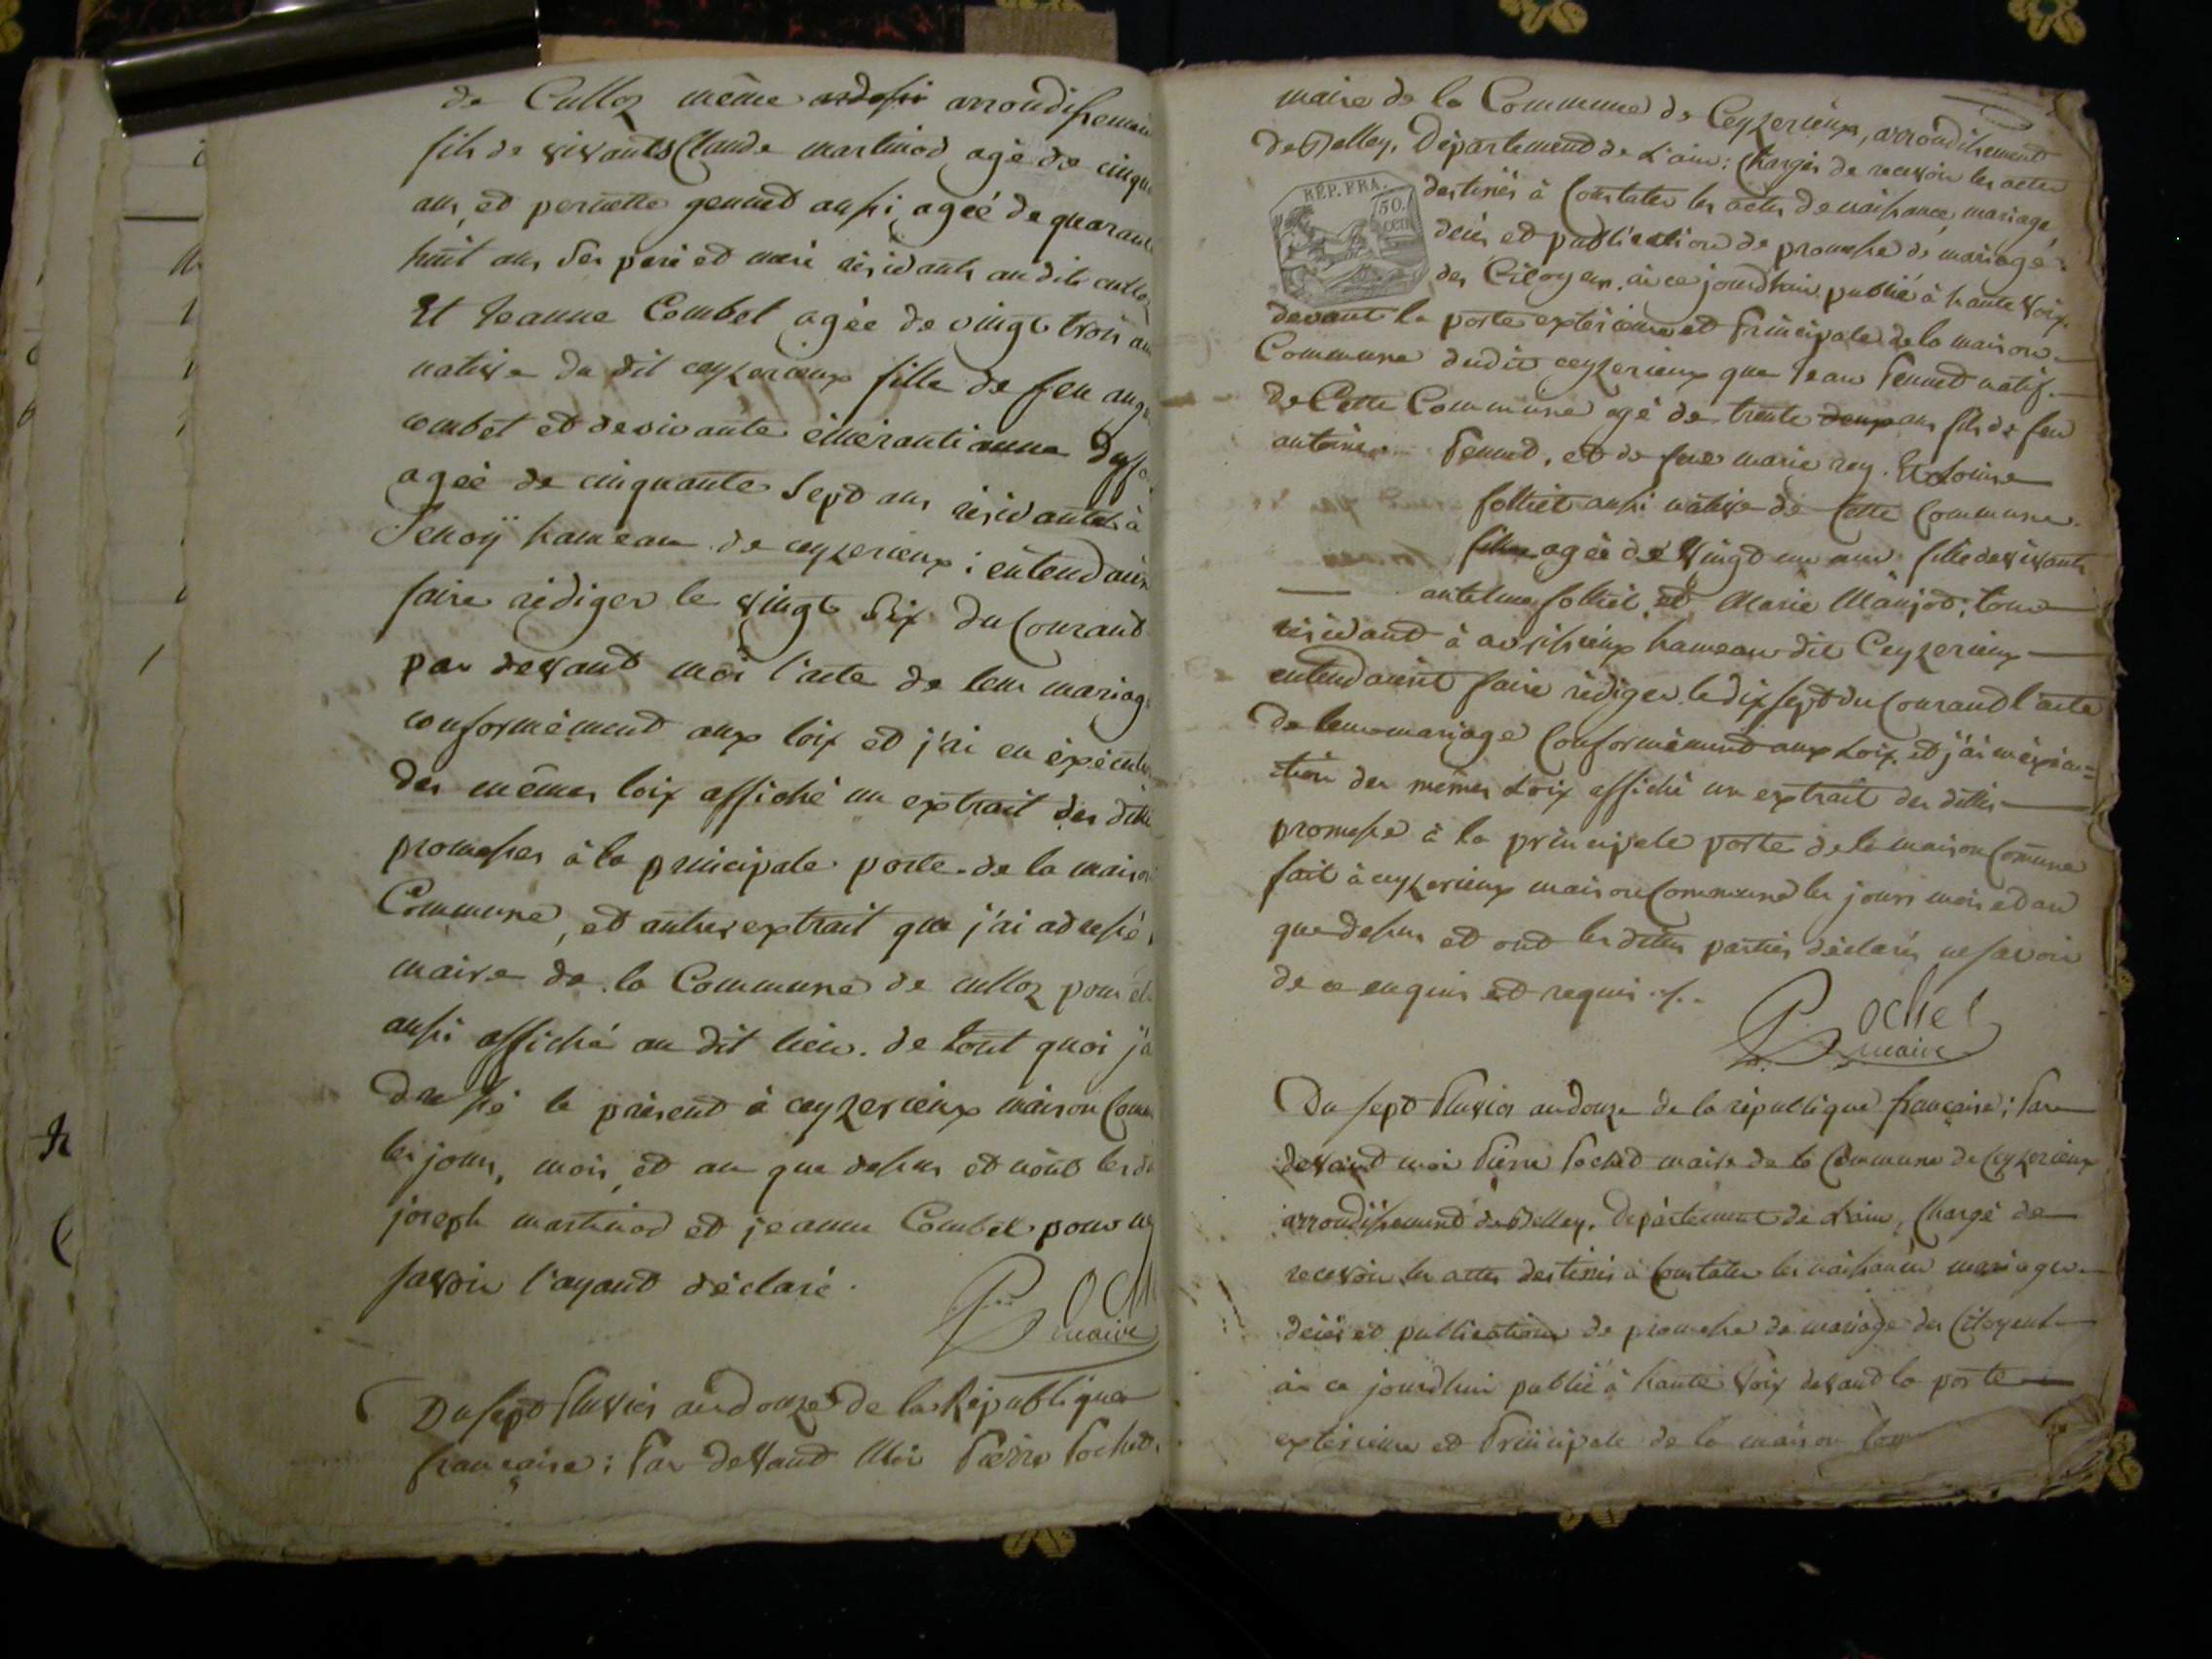 de Culloz même arrondissement
fils de vivants Claude martinod agé de cinqu
ans et pernette gennet aussi agée de quarante
huit ans ses pere et mere résidants au dit culloz
Et Jeanne Combet agée de vingt trois ans
native du dit ceyzerieux fille de feu
combet et de vivante
agée de cinquante sept ans résidante à
hameau de ceyzerieux ; entendaient
faire rédiger le vingt six du Courant
par devant moi l'acte de leur mariage
conformément aux loix et j'ai en éxécution
des mêmes loix affiché un extrait des dittes
promesses à la principale porte de la maison
Commune, et autre extrait que j'ai adressé
maire de la Commune de culloz pour
aussi affiché au dit lieu. de tout quoi j'a
dressé le présent à ceyzerieux maison Comm
les jour, mois, et an que dessus et n'ont les
joseph martinod et jeanne Combet pour
savoir l'ayant déclaré.
P Och
maire
Du sept Pluvios an douze de la République
française ; Par devant Moi Pierre Pochet
maire de la Commune de Ceyzerieux, arrondissement
de Belley, Département de L'ain ; Chargés de recevoir les actes
REP. FRA.
50.
cen
destinés à Constater les actes de naissance, mariage,
décès et publication de promesse de mariage
des Citoyens, ai ce jourdhui publié à haute voix
devant la porte extérieure et Principale de la maison
Commune dudit ceyzerieux que Jean Pennet natif
de Cette Commune agé de trente deux ans fils de feu
antoine Pennet, et de feue marie rey. Et Louise
folliet aussi native de Cette Commune
agée de Vingt un ans fille de vivants
antelme folliet et Marie Manjod ; tous
résidant à hameau dit Ceyzerieux
entendaient faire rédiger le dix sept du Courant l'acte
de leur mariage Conformément aux Loix et j'ai en éxécu=
tion des mêmes Loix affiché un extrait des dittes
promesse à la principale porte de la maison Comune
fait à ceyzerieux maison Commune les jours mois et an
que dessus et ont les dittes parties déclarés ne savoir
de ce enquis et requis
P Ochet
maire
Du sept Pluvios an douze de la république française ; Par
devant moi Pierre Pochet maire de la Commune de Ceyzerieux
arrondissement de Belley, Département de L'ain, Chargé de
recevoir les actes destinés à Constater les naissances mariages
décès et publications de promesse de mariage des Citoyens
ai ce jourdhui publié à haute Voix devant la porte
extérieure et Principale de la maison Com